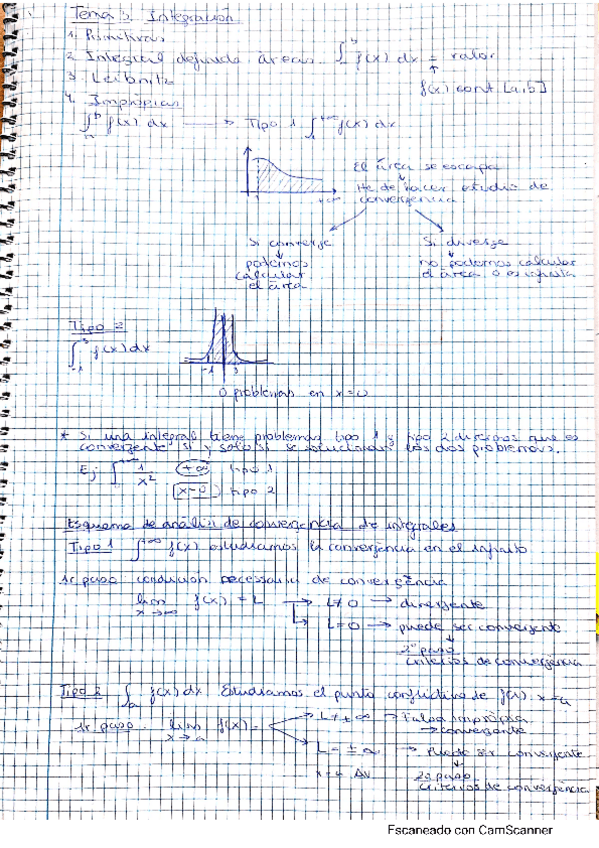 Tema 3: Integración
1. Primitivas
2. Integral definida áreas ∫ f(x) dx = valor
f(x) cont [a,b]
3. Leibnitz
4. Impropias
∫ f(x) dx → Tipo 1 ∫ f(x) dx
El área se escapa
He de hacer estudio de
convergencia
Si converje
podemos
calcular
el área
Si diverje
no podemos calcular
el área o es infinita
Tipo 2
∫ f(x) dx
-1
0 problemas en x=0
* Si una integral tiene problemas tipo 1 y tipo 2 diremos que es
convergente si y solo si se solucionan los dos problemas.
Ej ∫ 1/x² +∞ tipo 1
x=0 tipo 2
Esquema de análisis de convergencia de integrales
Tipo 1 ∫ f(x) estudiamos la convergencia en el infinito
1r paso condición necesaria de convergencia
lim f(x) = L → L≠0 → divergente
x→∞ → L=0 → puede ser convergente
2º paso
criterios de convergencia
Tipo 2 ∫ f(x) dx Estudiamos el punto conflictivo de f(x) x=a
1r paso lim f(x) = L≠±∞ → Falsa impropia
x→a → convergente
L=±∞ → Puede ser convergente
x=a AV 2º paso
criterios de convergencia
Escaneado con CamScanner